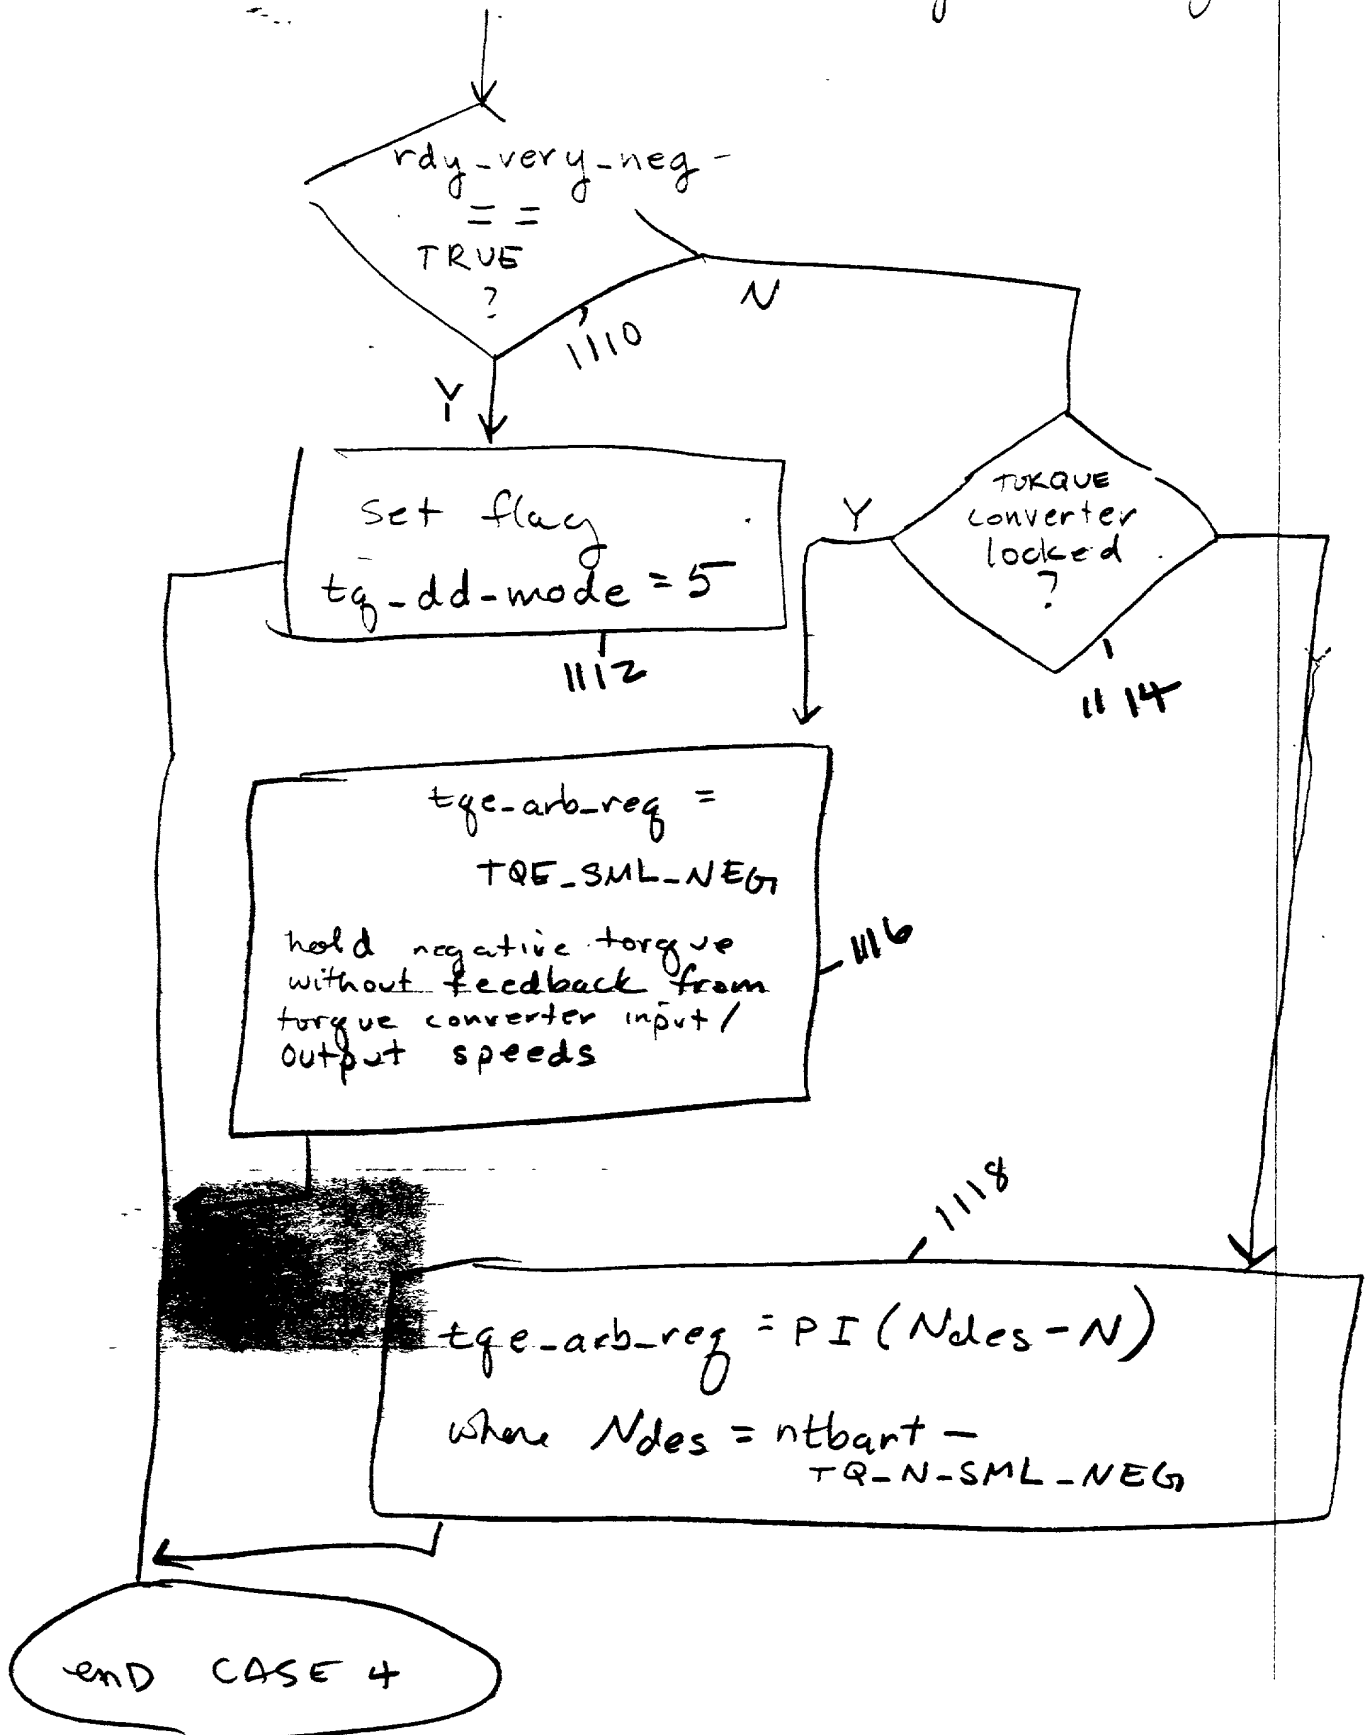 rdy_very_neg -
= =
TRUE
?
N
1110
Y
set flag
tq_dd_mode = 5
1112
TORQUE
converter
locked
?
Y
1114
tqe_arb_req =
TQE_SML_NEG
hold negative torque
without feedback from
torque converter input/
output speeds
1116
1118
tqe_arb_req = PI (Ndes - N)
where Ndes = ntbart -
TQ_N_SML_NEG
end CASE 4